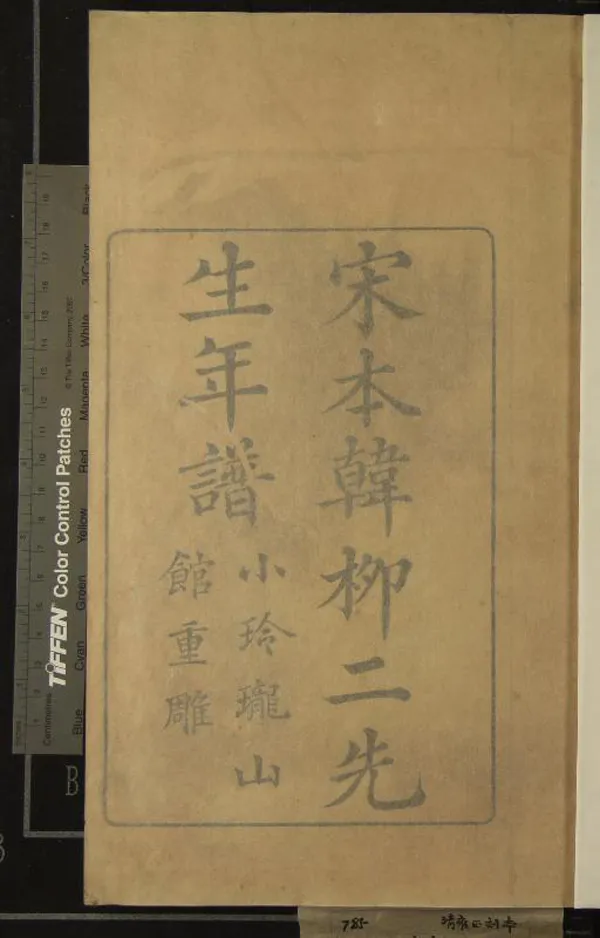 宋本韓柳二先
生年譜
小玲瓏山
館重雕
TIFFEN Color Control Patches
© The Tiffen Company, 2007
Centimetres
Blue
Cyan
Green
Yellow
Red
Magenta
White
3/Color
Black
B
785